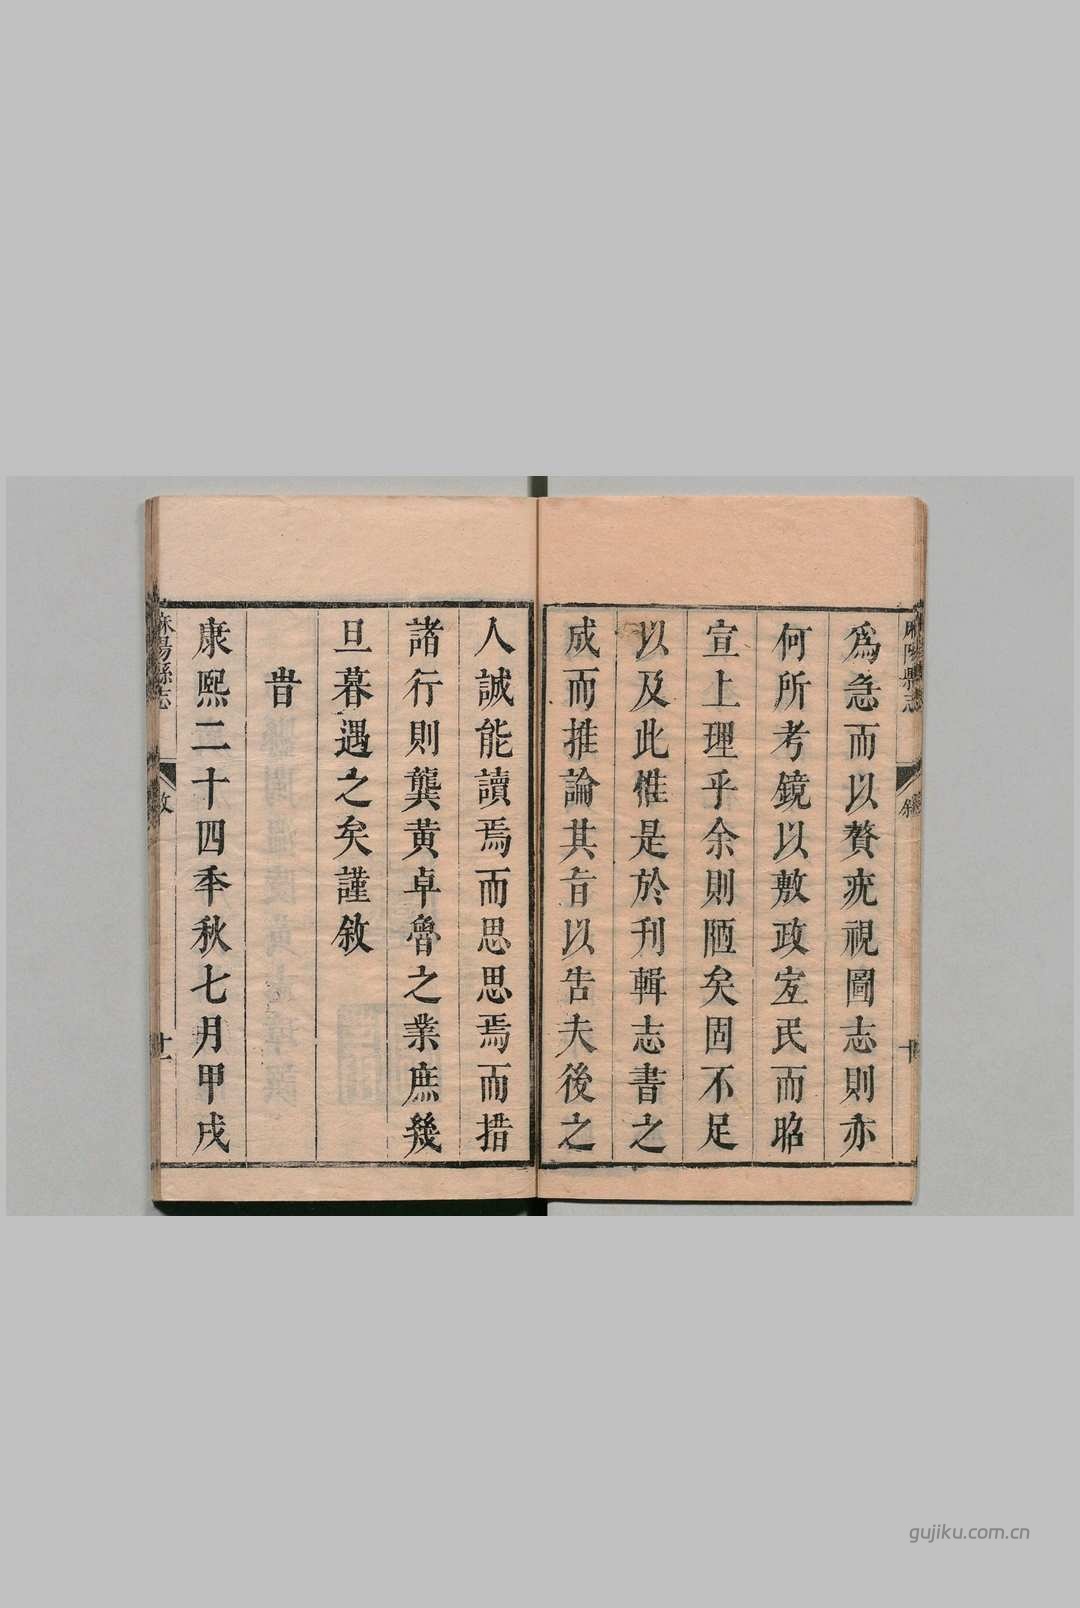 為急而以贅疣視圖志則亦
何所考鏡以敷政宐民而昭
宣上理乎余則陋矣固不足
以及此惟是於刊輯志書之
成而推論其旨以告夫後之
人誠能讀焉而思思焉而措
諸行則龔黃卓魯之業庶幾
旦暮遇之矣謹敘
旹
康熙二十四季秋七月甲戌
麻陽縣志
敘
十
麻陽縣志
敘
十一
gujiku.com.cn